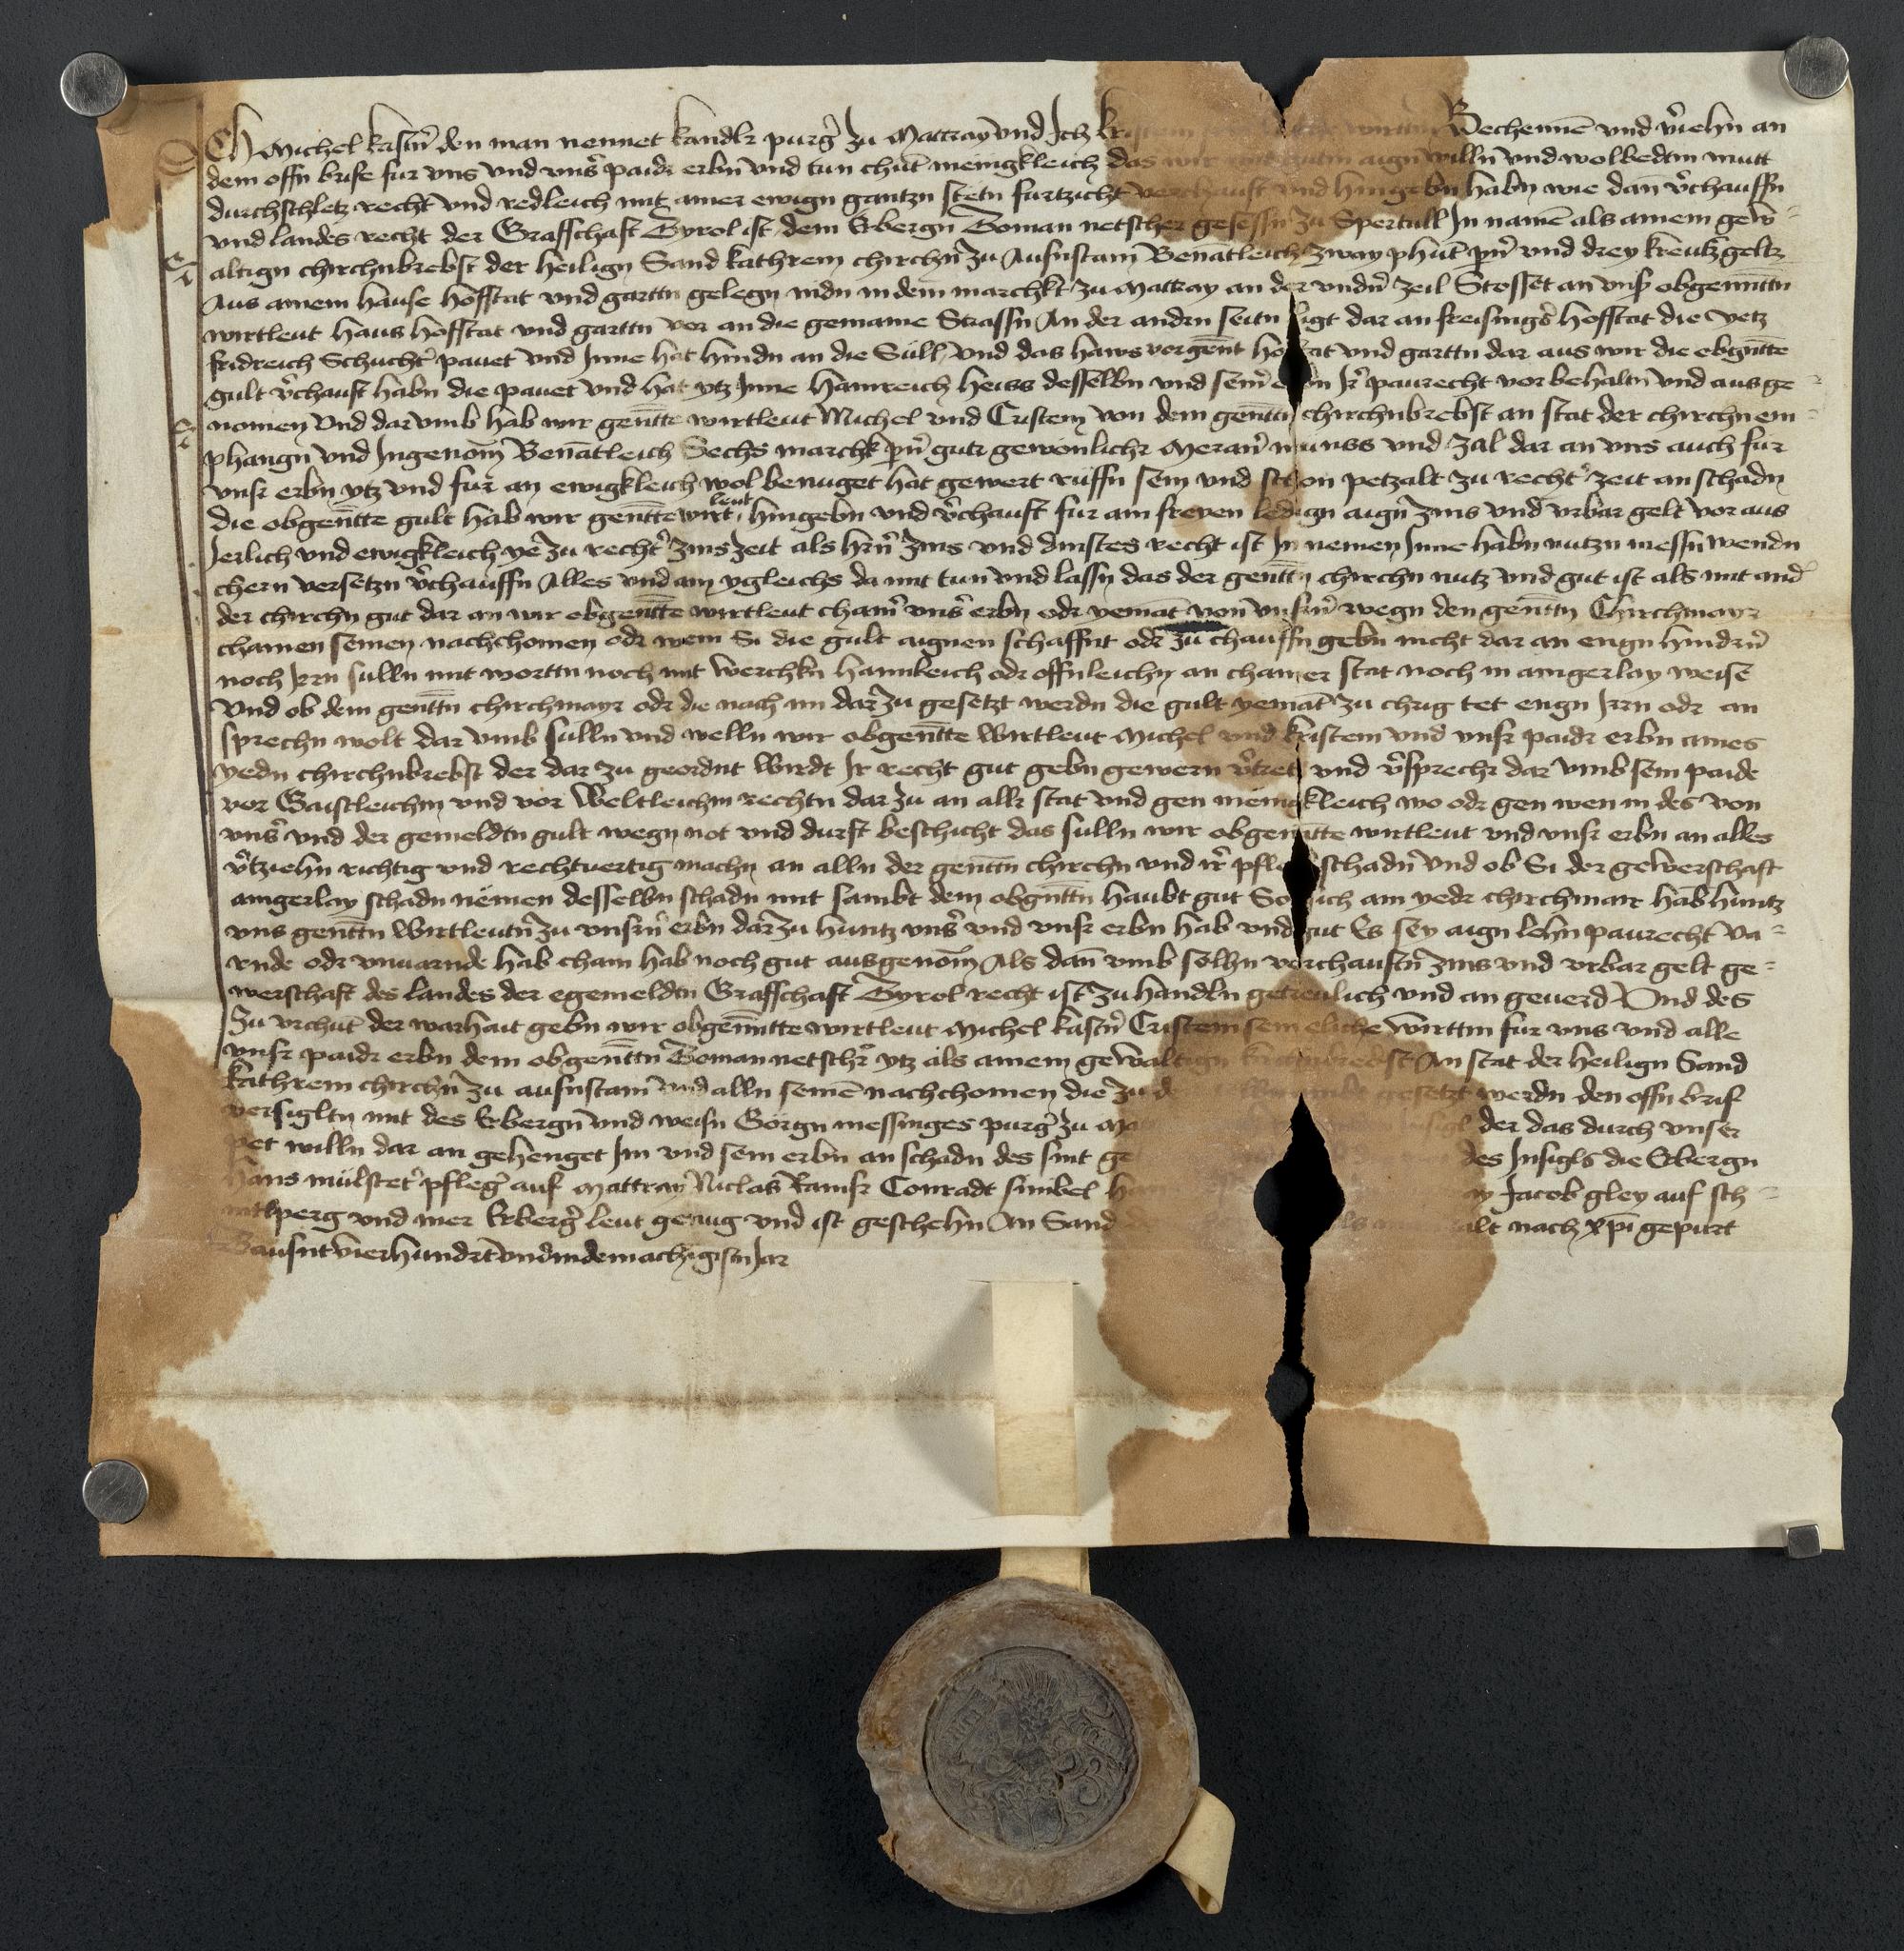 Ich Michel kastn̄ den man nennet kandlr purg̓ zu Mattray vnd Ich kristein wirttin Bechennē vnd v̓iehn an
dem offn brife fur vns vnd vns̓ paidr erbn̄ vnd tun chūt menigkleich das wir mit gutm aign̄ willn̄ vnd wolbedtm mutt
durchschletz recht vnd redleich mit ainer ewign gantzn stetn furtzicht verchauft vnd hingebn habn wie dan̄ v̓chauffn
vnd landes recht der Graffschaft Tyrol ist dem Erbergn̄ Toman netscher gesessn̄ zu Spertull In namē als ainem gew=
altign chirchnbrebst der heilign Sand kathrein chirchn̄ zu Aufnstain Benātleich zway phūt pn̄ vnd drey kreutz geltz
Aus ainem hause hofstat vnd garttn gelegn nidn in dem marchkt zu Mattray an der vndn̄ zeil Stosset an vnsr obgenn̄ttn
wirtleut haus hofstat vnd garttn vor an die gemaine Strassn An der andrn seitn ligt dar an freisings̓ hofstat die yetz
fridreich Schucht̓ pauet vnd Inne hat hindn an die Süll vnd das haws vorgen̄t hofstat vnd garttn dar aus wir die obgn̄tte
gult v̓chauft habn die pauet vnd hat ytz Inne hainreich heiss desselbn vnd sein̓ erbn Ir̓ paurecht vor behaltn̄ vnd aus ge=
nomen Vnd dar vmb hab wir gen̄tte wirtleut Michel vnd Cristein von dem gen̄ttn chirchnbrebst an stat der chirchn em=
phangn̄ vnd Ingenom̄ Benātleich Sechs marchk pn̄ gutr gewonlichr Meran̓ munss vnd zal dar an vns auch fur
vnsr erbn ytz vnd fur an ewigkleich wol benuget hat gewert rüffn sein vnd schon petzalt zu recht̓ zeit an schadn
die obgen̄tte gult hab wir gen̄tte wirtleut hingebn vnd v̓chauft fur ain freyen ledign aign̄ zins vnd vrbar gelt vor aus
Jerlich vnd ewigkleich ye zu recht̓ zins zeit als hrn̄ zins vnd dinstes recht ist In nemen Inne habn nutzn messn̄ wendn
chern versetzn v̓chauffn Alles vnd ain ygleichs da mit tun vnd lassn das der gen̄ttn chirchn nutz vnd gut ist als mit and̓
der chirchn gut dar an wir obgen̄tte wirtleut chain̓ vns̓ erbn odr yemāt von vnsrn̄ wegn den gen̄ttn Chirchmayr
chainen seinen nachchomen odr wem Si die gult aignen schaffnt odr zu chauffn gebn nicht dar an engn hindrn̄
noch Irrn sulln mit worttn noch mit werchkn haimleich odr offnleichn an chainer stat noch in aingerlay weise
Vnd ob dem gen̄ttn̄ chirchmayr odr die nach im dar zu gesetzt werdn die gult yemāt zu chrig tet engn Irrn odr an
sprechn wolt dar vmb sulln vnd welln wir obgen̄tte Wirtleut Michel vnd kristein vnd vnsr paidr erbn aines
yedn chirchnbrebst der dar zu geordnt wirdt Ir recht gut gebn gewern v̓tretn vnd v̓sprechr dar vmb sein paide
vor Gaistleichm vnd vor Weltleichm rechtn dar zu an allr stat vnd gen menigkleich wo odr gen wen in des von
vns̓ vnd der gemeldtn gult wegn not vnd durft beschicht das sulln wir obgen̄tte wirtleut vnd vnsr erbn an alles
v̓tziehn richtig vnd rechtuertig machn an alln der gen̄ttn chirchn vnd ir̓ pfleg schadn̄ vnd ob Si der gewerschaft
aingerlay schadn nëmen desselbn schadn mit sambt dem obgn̄ttn haubt gut Sol sich ain yedr chirchmair hab hintz
vns gen̄ttn Wirtleutn̄ zu vnsrn̄ erbn dar zu hintz vns̓ vnd vnsr erbn hab vnd gut Es sey aign lehn paurecht va=
rnde odr vnuarnde hab chain hab noch gut ausgenom̄ Als dan̄ vmb sölhn verchauftn̄ zins vnd vrbar gelt ge=
werschaft des landes der egemeldtn Graffschaft Tyrol recht ist zu handln getreulich vnd an geuerd Vnd des
Zu vrchūt der warhait gebn wir obgen̄tte wirtleut Michel kastn̄ Cristein sein eliche wirttin fur vns vnd alle
vnsr paidr erbn dem obgen̄ttn Toman netschr̓ ytz als ainem gewaltign kirchnbrebst An stat der heilign Sand
kathrein chirchn̄ zu aufnstain vnd alln seinē nachchomen die zu de gesetzt werdn den offn brif
versigltn mit des Erbergn̄ vnd weisn Görgn messinges purg̓ zu Mat Insigl der das durch vnser
pet willn dar an gehenget Im vnd sein erbn an schadn des sint ge des Insigls die Erbergn
hans mülstet̓ pfleg̓ auf Mattray Niclas Ramsr Conradt simbel han ay Jacob gley auf sch=
intlperg vnd mer Erberg̓ leut genug vnd ist geschehn An Sand alt nach xp̄i gepurt
Tausnt vierhundrt vnd in dem achzigistn Jar